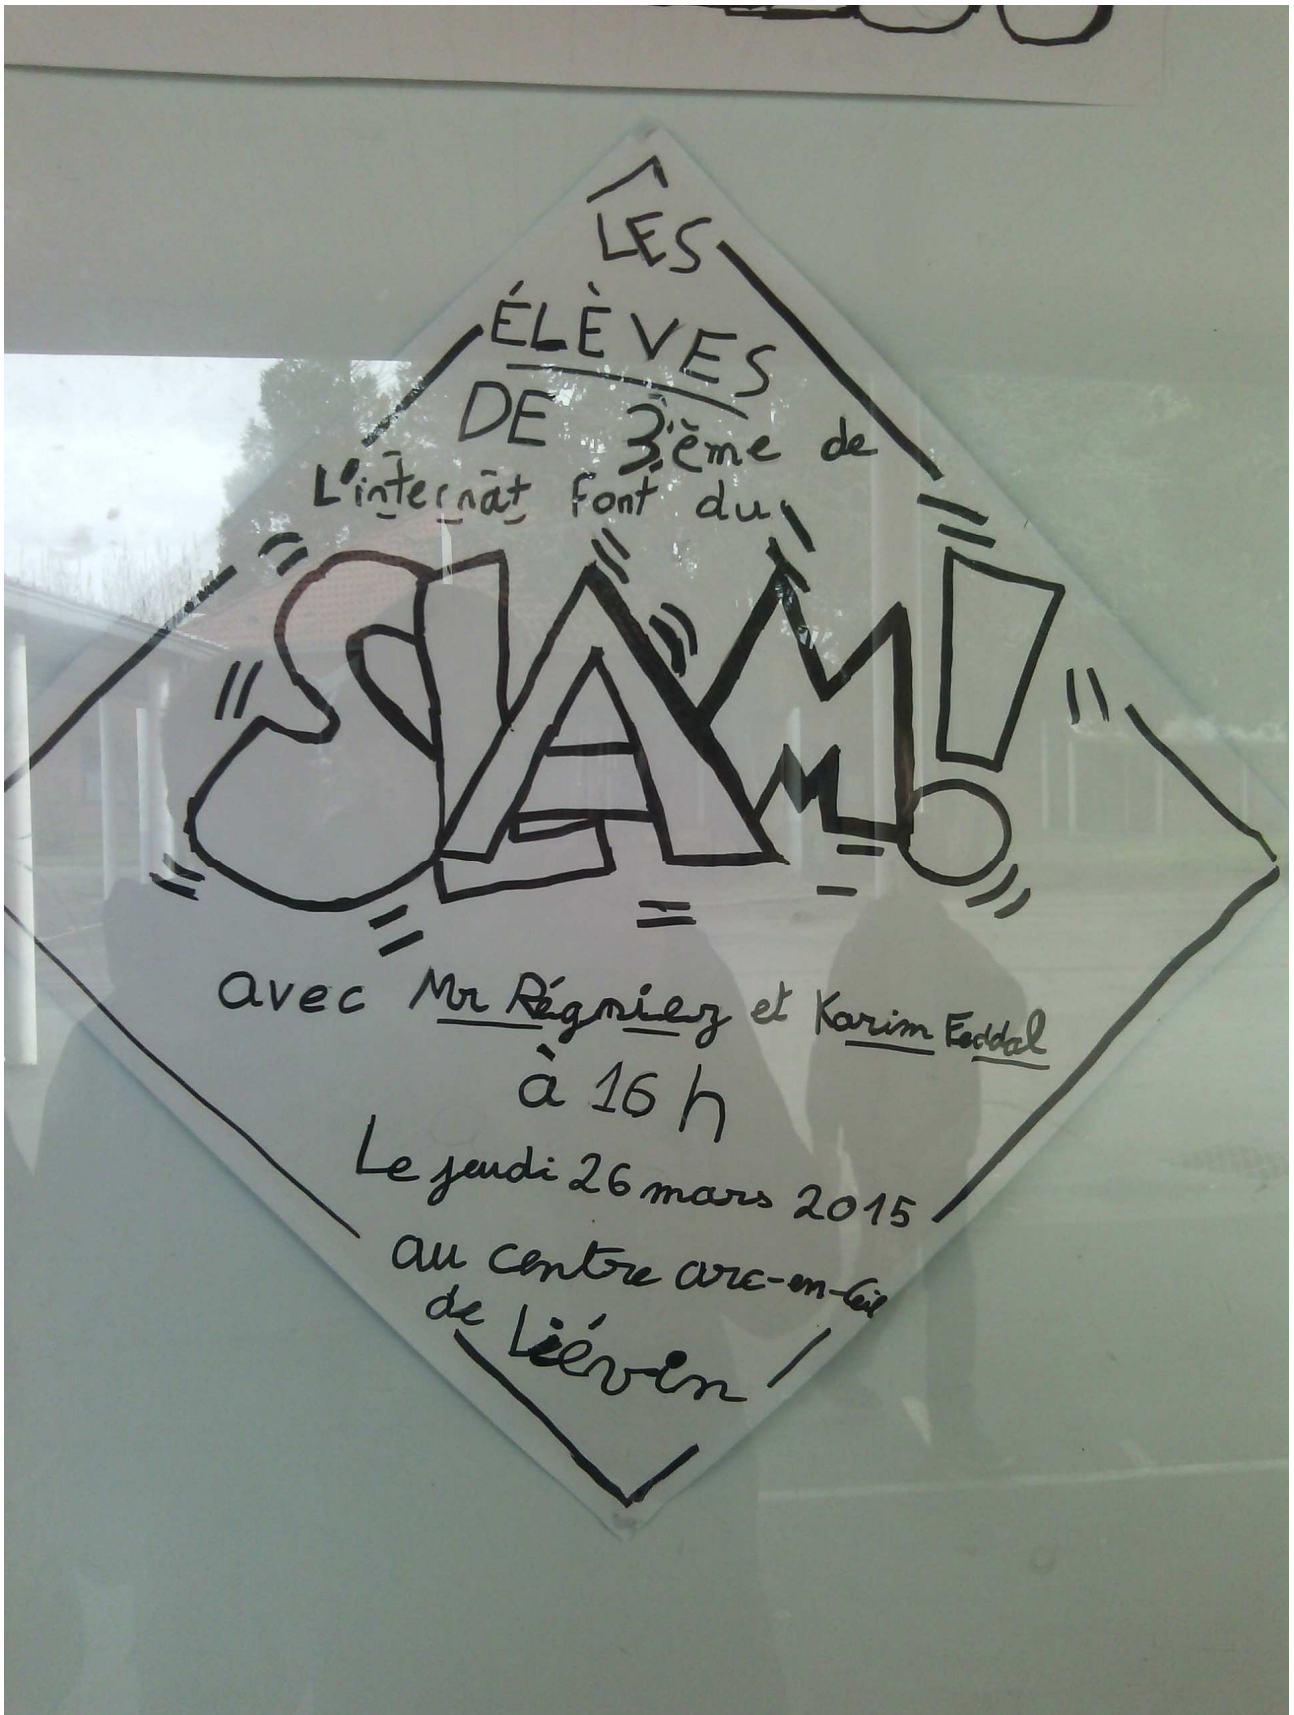 LES
ÉLÈVES
DE 3ième de
L'internat font du
SLAM!
avec Mr Régniez et Karim Feddal
à 16 h
Le jeudi 26 mars 2015
au centre arc-en-Ciel
de Liévin